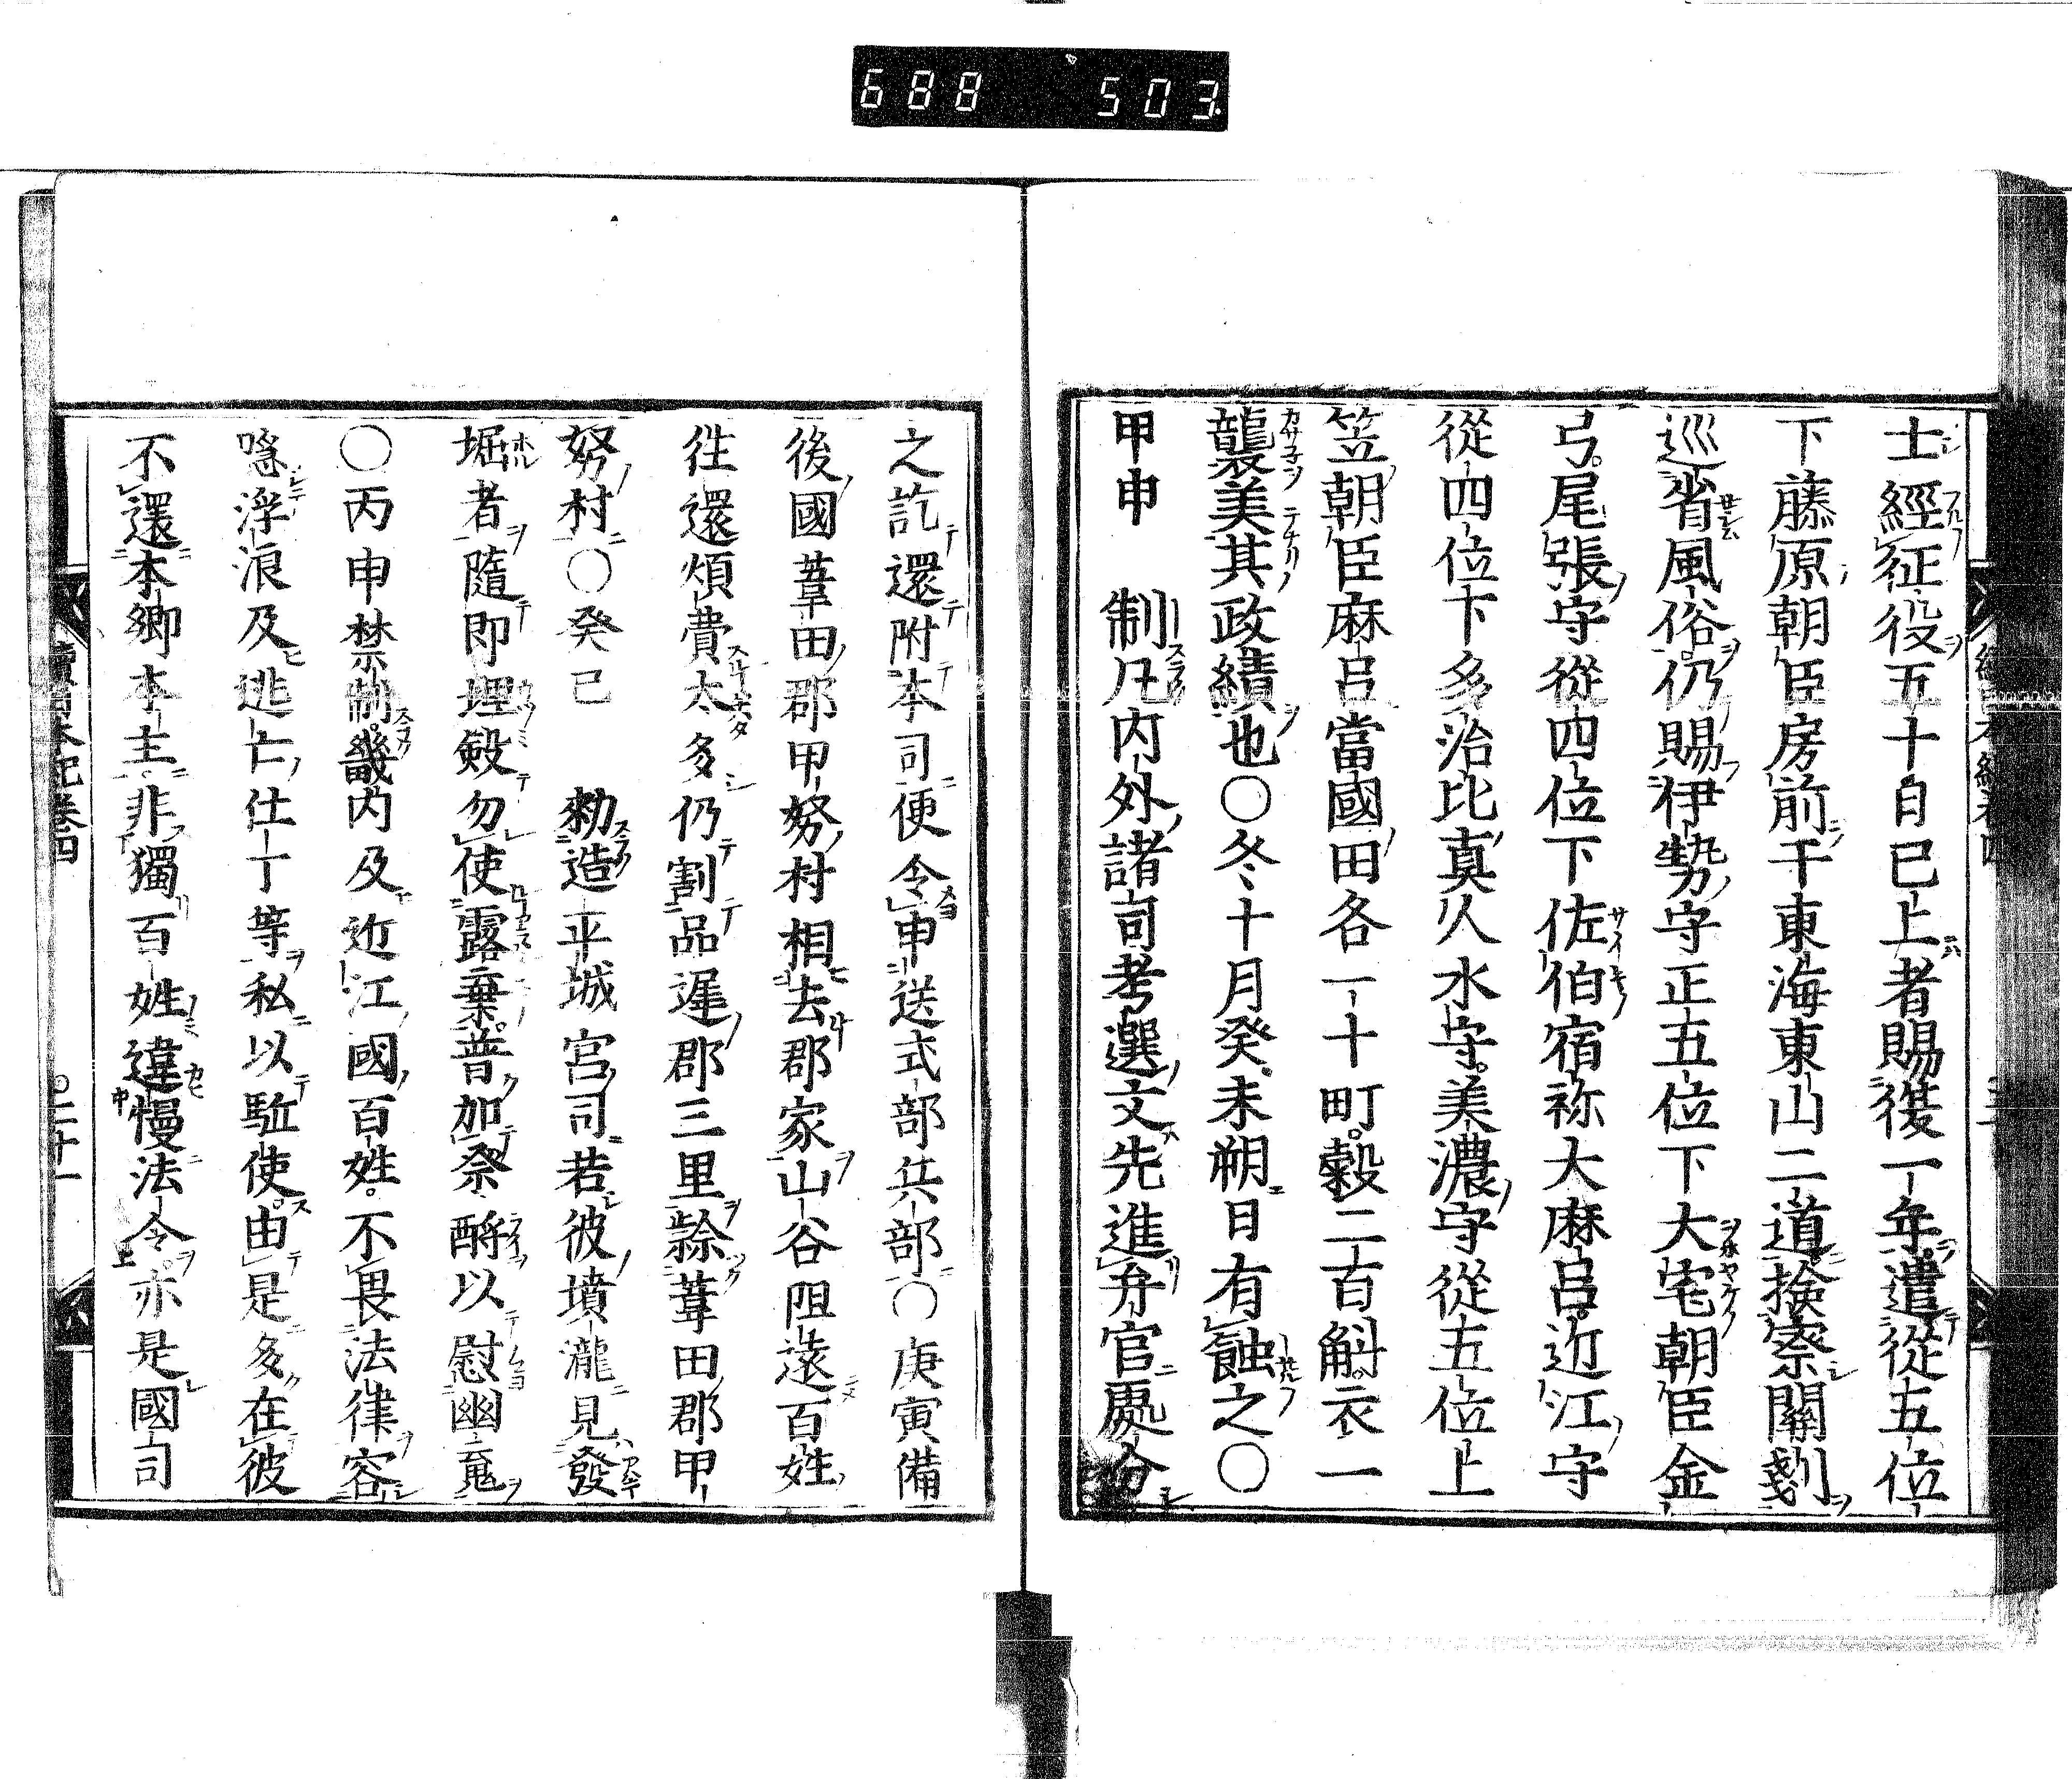 688 503
士經征役五十日已上者賜復一年遣從五位
下藤原朝臣房前于東海東山二道撿察關剗
巡省風俗仍賜伊勢守正五位下大宅朝臣金
弓尾張守從四位下佐伯宿祢大麻呂近江守
從四位下多治比真人水守美濃守從五位上
笠朝臣麻呂當國田各一十町穀二百斛衣一
襲美其政績也〇冬十月癸未朔日有蝕之〇
甲申 制凡內外諸司考選文先進弁官處分
之訖還附本司便令申送式部兵部〇庚寅備
後國葦田郡甲努村相去郡家山谷阻遠百姓
徃還煩費太多仍割品遲郡三里隸葦田郡甲
努村〇癸巳 勑造平城宮司若彼墳瀧見發
堀者隨即埋斂勿使露棄普加祭酹以慰幽魂
〇丙申禁制畿内及近江國百姓不畏法律容
隱浮浪及逃亡仕丁等私以駈使由是多在彼
不還本鄉本主非獨百姓違慢法令亦是國司
續日本紀卷四
二十一